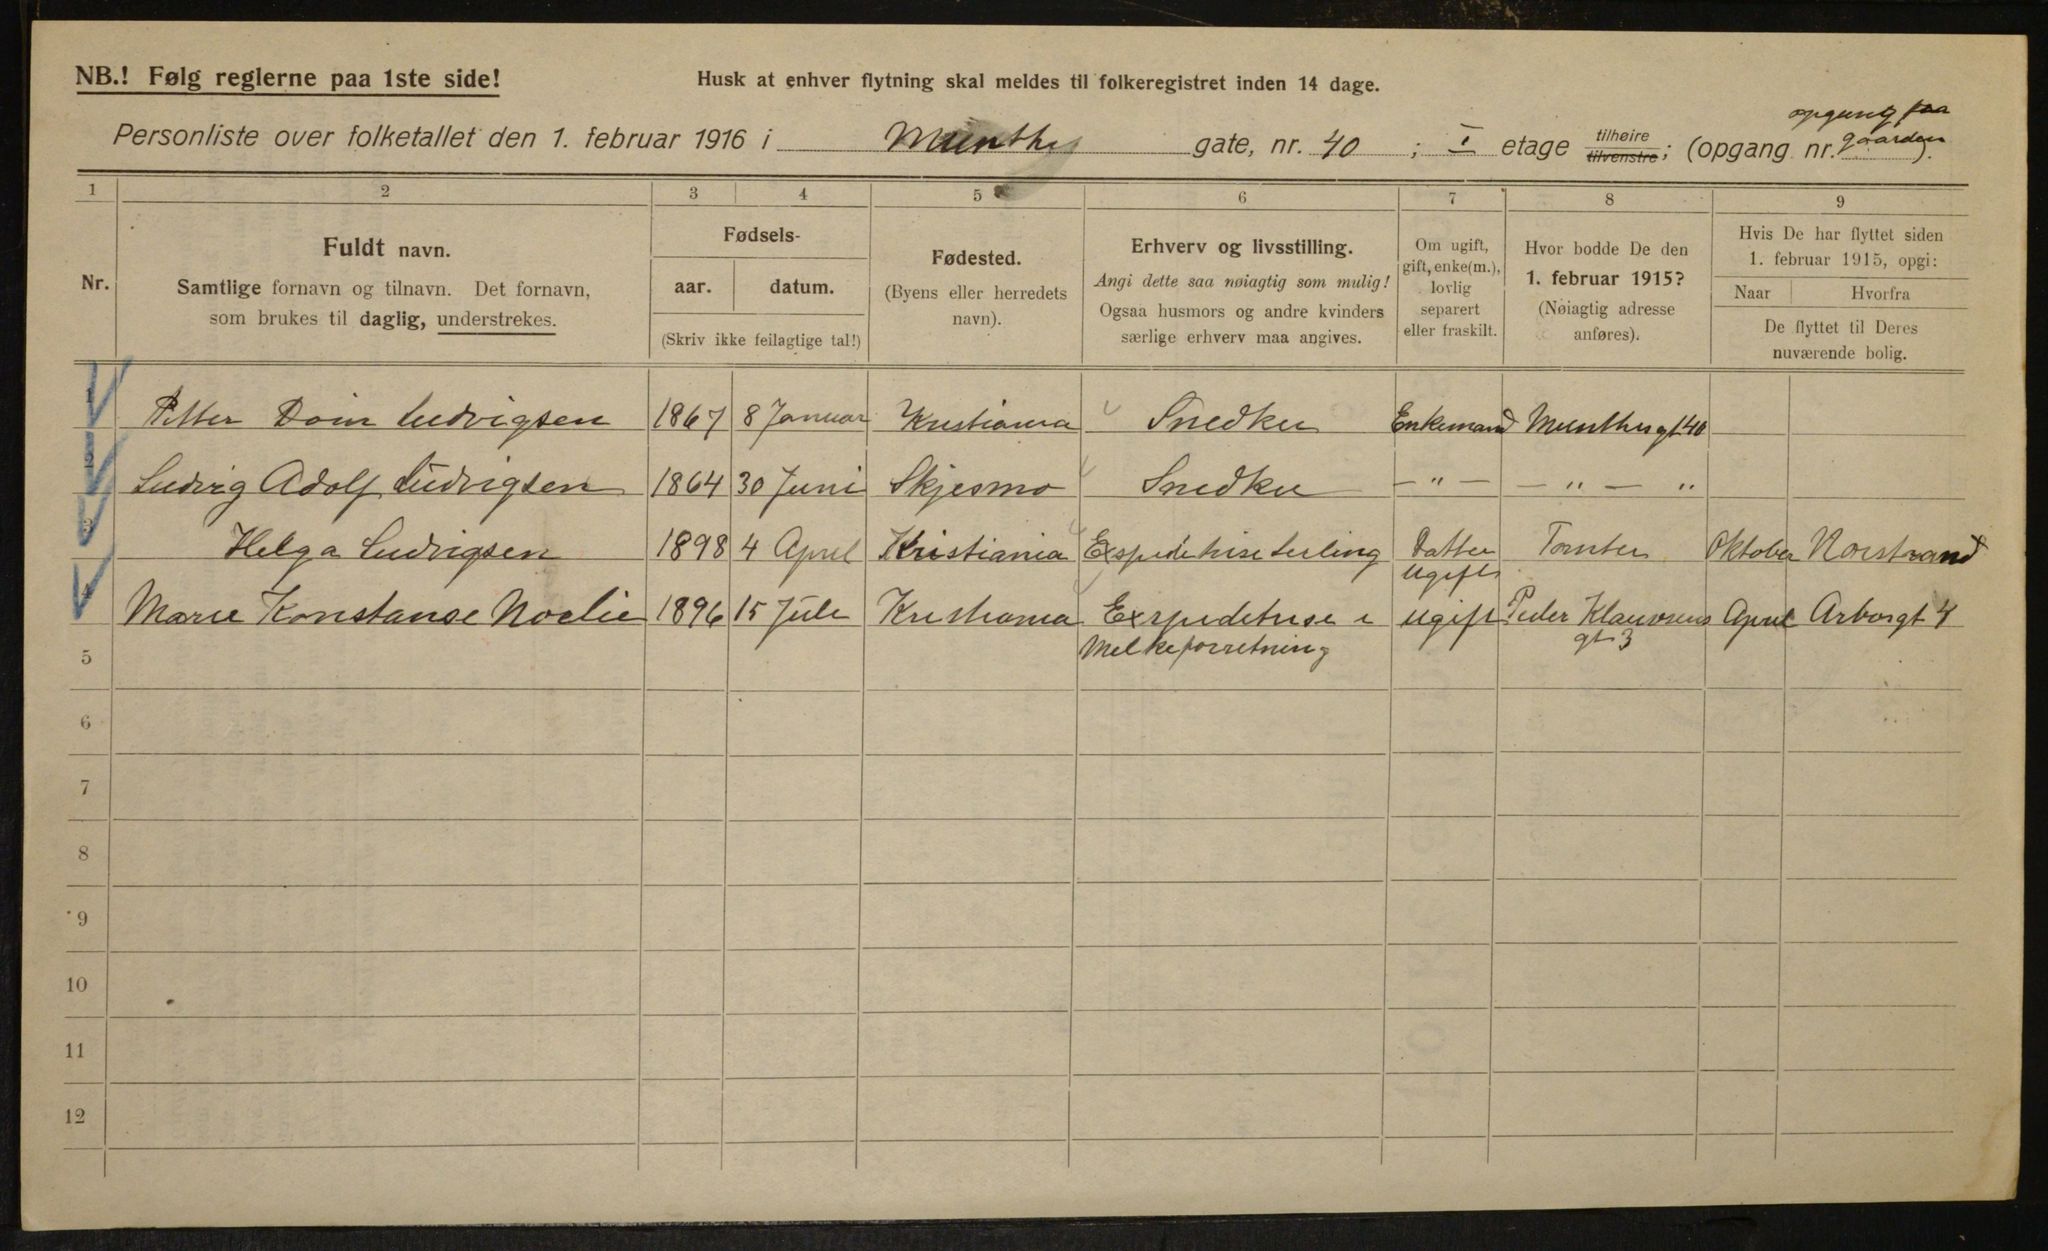 NB.! Følg reglerne paa 1ste side!
Husk at enhver flytning skal meldes til folkeregistret inden 14 dage.
opgang paa
Personliste over folketallet den 1. februar 1916 i Munthes gate, nr. 40 ; I etage tilhøire tilvenstre; (opgang nr. gaarden).
1 2 3 4 5 6 7 8 9
Nr.
Fuldt navn.
Samtlige fornavn og tilnavn. Det fornavn,
som brukes til daglig, understrekes.
Fødsels-
aar. datum.
(Skriv ikke feilagtige tal!)
Fødested.
(Byens eller herredets
navn).
Erhverv og livsstilling.
Angi dette saa nøiagtig som mulig!
Ogsaa husmors og andre kvinders
særlige erhverv maa angives.
Om ugift,
gift, enke(m.),
lovlig
separert
eller fraskilt.
Hvor bodde De den
1. februar 1915?
(Nøiagtig adresse
anføres).
Hvis De har flyttet siden
1. februar 1915, opgi:
Naar Hvorfra
De flyttet til Deres
nuværende bolig.
1 Petter Ludvigsen 1867 8 Januar Kristiania Snedker Enkemand Munthesgt 40
2 Ludvig Adolf Ludvigsen 1864 30 Juni Skjesmo Snedker — " — — " — "
3 Helga Ludvigsen 1898 4 April Kristiania Datter Tomter Oktober Norstrand
ugift
4 Marie Konstanse 1896 15 Juli Kristiania Expeditrise i ugift Peder Klausens April Arbosgt 4
Melkeforretning gt 3
5
6
7
8
9
10
11
12